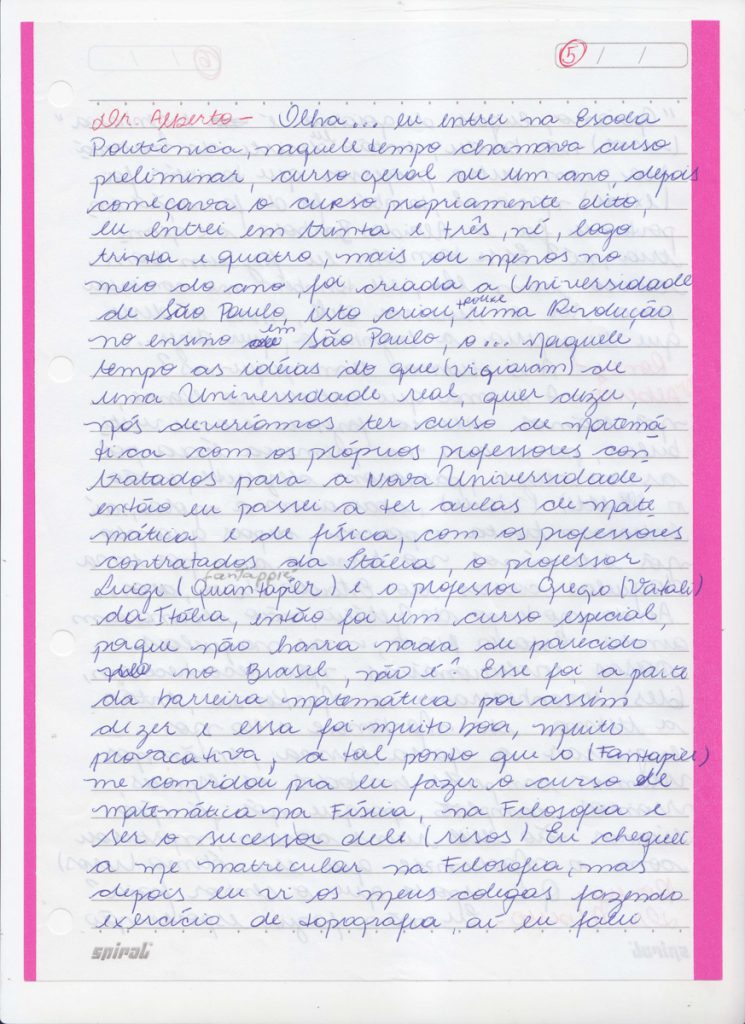 5 / /
Dr. Alberto - Olha... eu entrei na Escola
Politécnica, naquele tempo chamava curso
preliminar, curso geral de um ano, depois
começava o curso propriamente dito,
eu entrei em trinta e três, né, logo
trinta e quatro, mais ou menos no
meio do ano, foi criada a Universidade
de São Paulo, isto criou, trouxe uma Revolução
no ensino em São Paulo, o... naquele
tempo as idéias do que (vigiaram) de
uma Universidade real, quer dizer,
nós deveríamos ter curso de matemá
tica com os próprios professores con
tratados para a Nova Universidade,
então eu passei a ter aulas de mate
mática e de física, com os professores
contratados da Itália, o professor
Fantappié
Luigi (Quantapier) e o professor Gregio (Vatali)
da Itália, então foi um curso especial,
porque não havia nada de parecido
no Brasil, não é? Esse foi a parte
da barreira matemática por assim
dizer e essa foi muito boa, muito
provocativa, a tal ponto que o (Fantapier)
me convidou pra eu fazer o curso de
matemática na Física, na Filosofia e
ser o sucessor dele (risos) Eu cheguei
a me matricular na Filosofia, mas
depois eu vi os meus colegas fazendo
exercício de topografia, aí eu falo
spiral